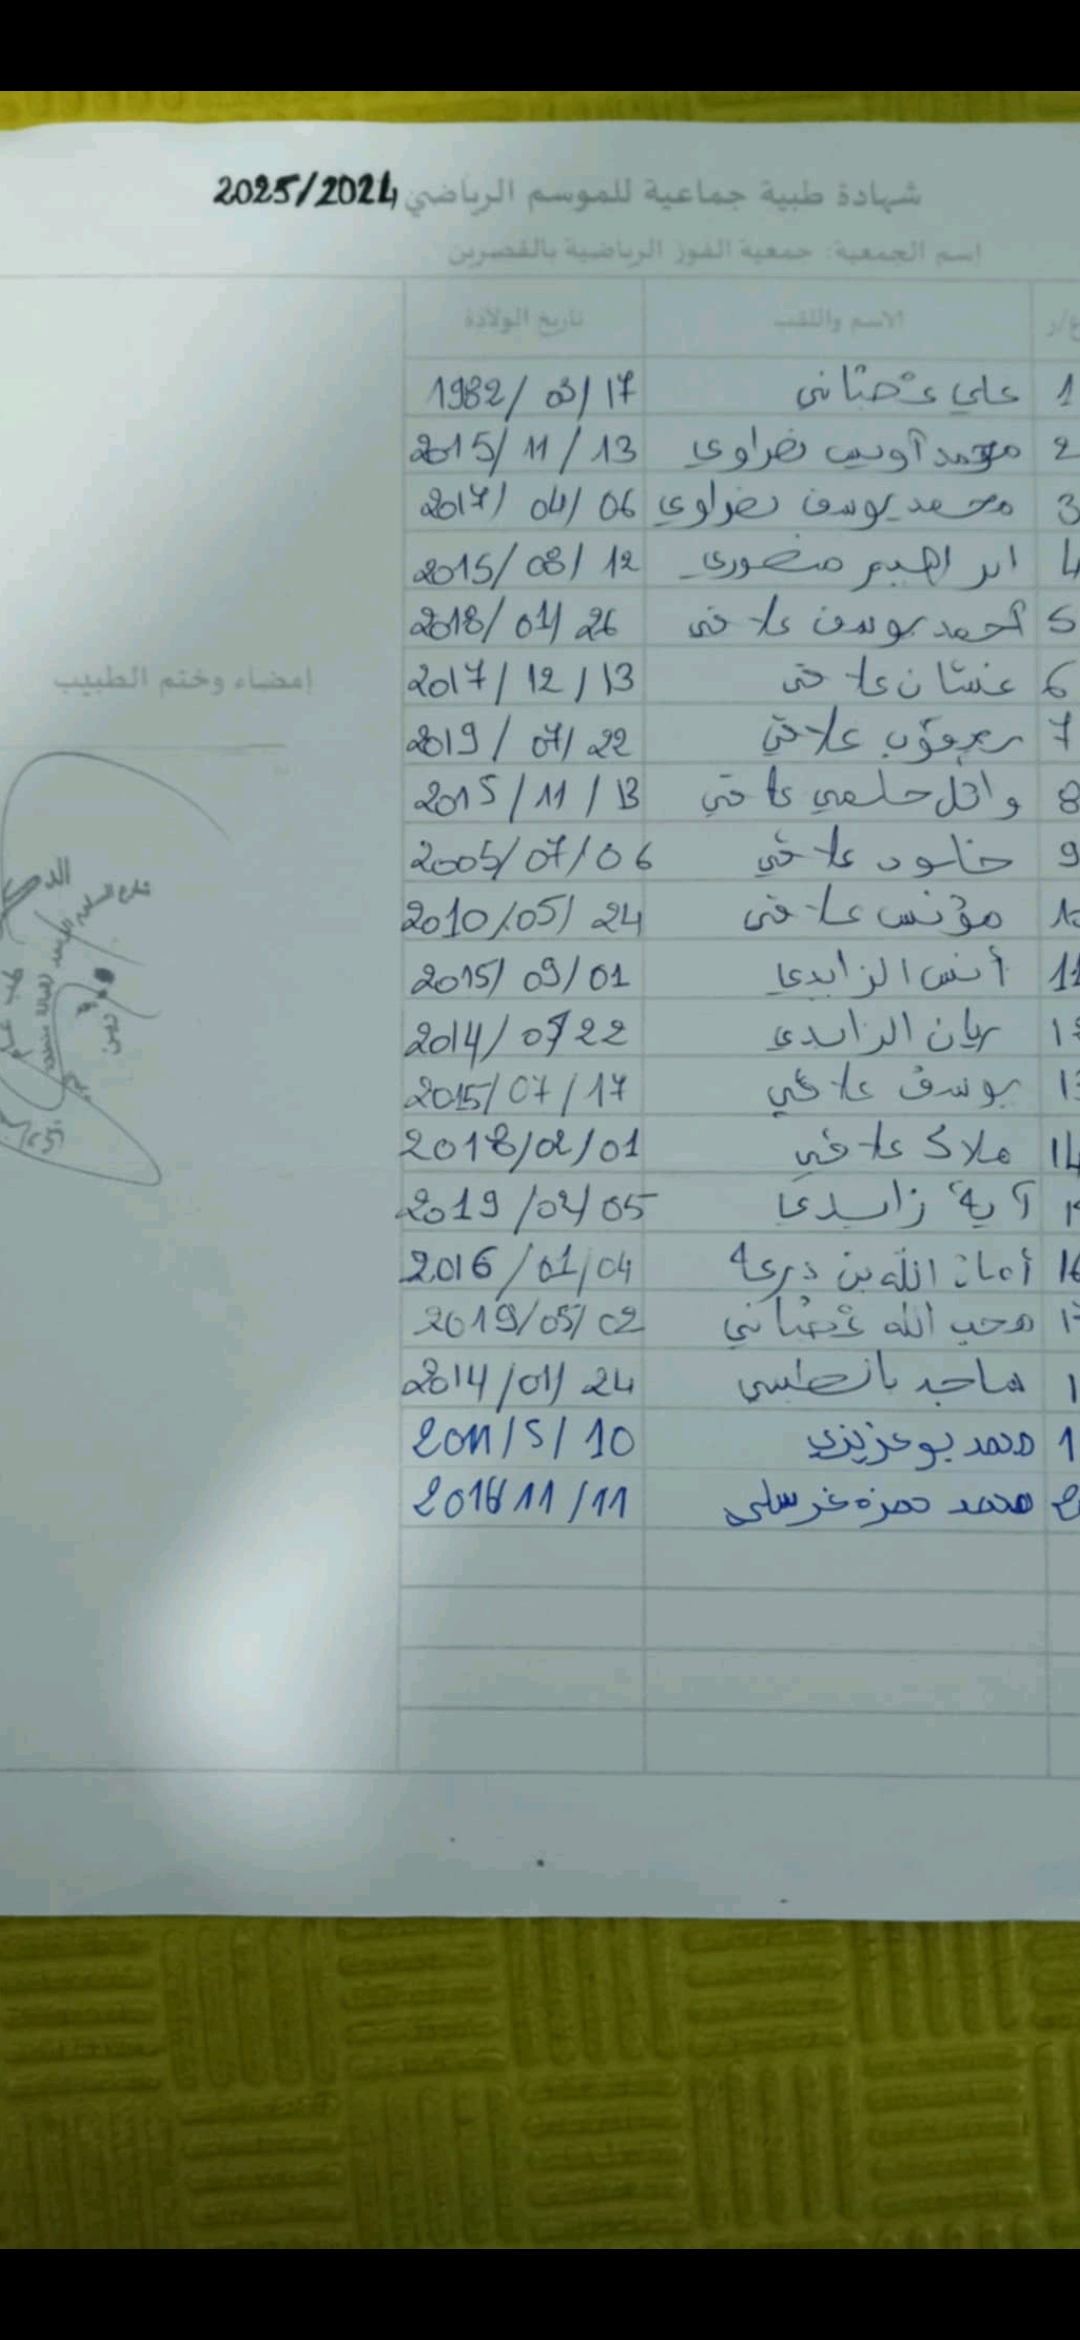 شهادة طبية جماعية للموسم الرياضي 2025/2024
اسم الجمعية: جمعية الفوز الرياضية بالقصرين
ع/ر الاسم واللقب تاريخ الولادة
1 علي عصباني 1982/03/17
2 محمد أويس نصراوي 2015/11/13
3 محمد يوسف نصراوي 2017/04/06
4 ابراهيم منصوري 2015/08/12
5 أحمد يوسف علاقي 2018/01/26
6 غسان علاقي 2017/12/13
7 يعقوب علاقي 2019/07/22
8 وائل حلمي علاقي 2015/11/13
9 خلود علاقي 2005/07/06
10 مؤنس علاقي 2010/05/24
11 أنس الزايدي 2015/09/01
ريان الزايدي 22
يوسف علاقي 2015/07/17
14 ملاك علاقي 2018/02/01
آية زايدي 2019/02/05
16 أمان الله بن ذرعة 2016/01/04
محب الله عصباني 2019/05/02
ماجد بالطيبي 2014/01/24
محمد بوعزيزي 2011/5/10
محمد حمزه غرسلي 11/11
إمضاء وختم الطبيب